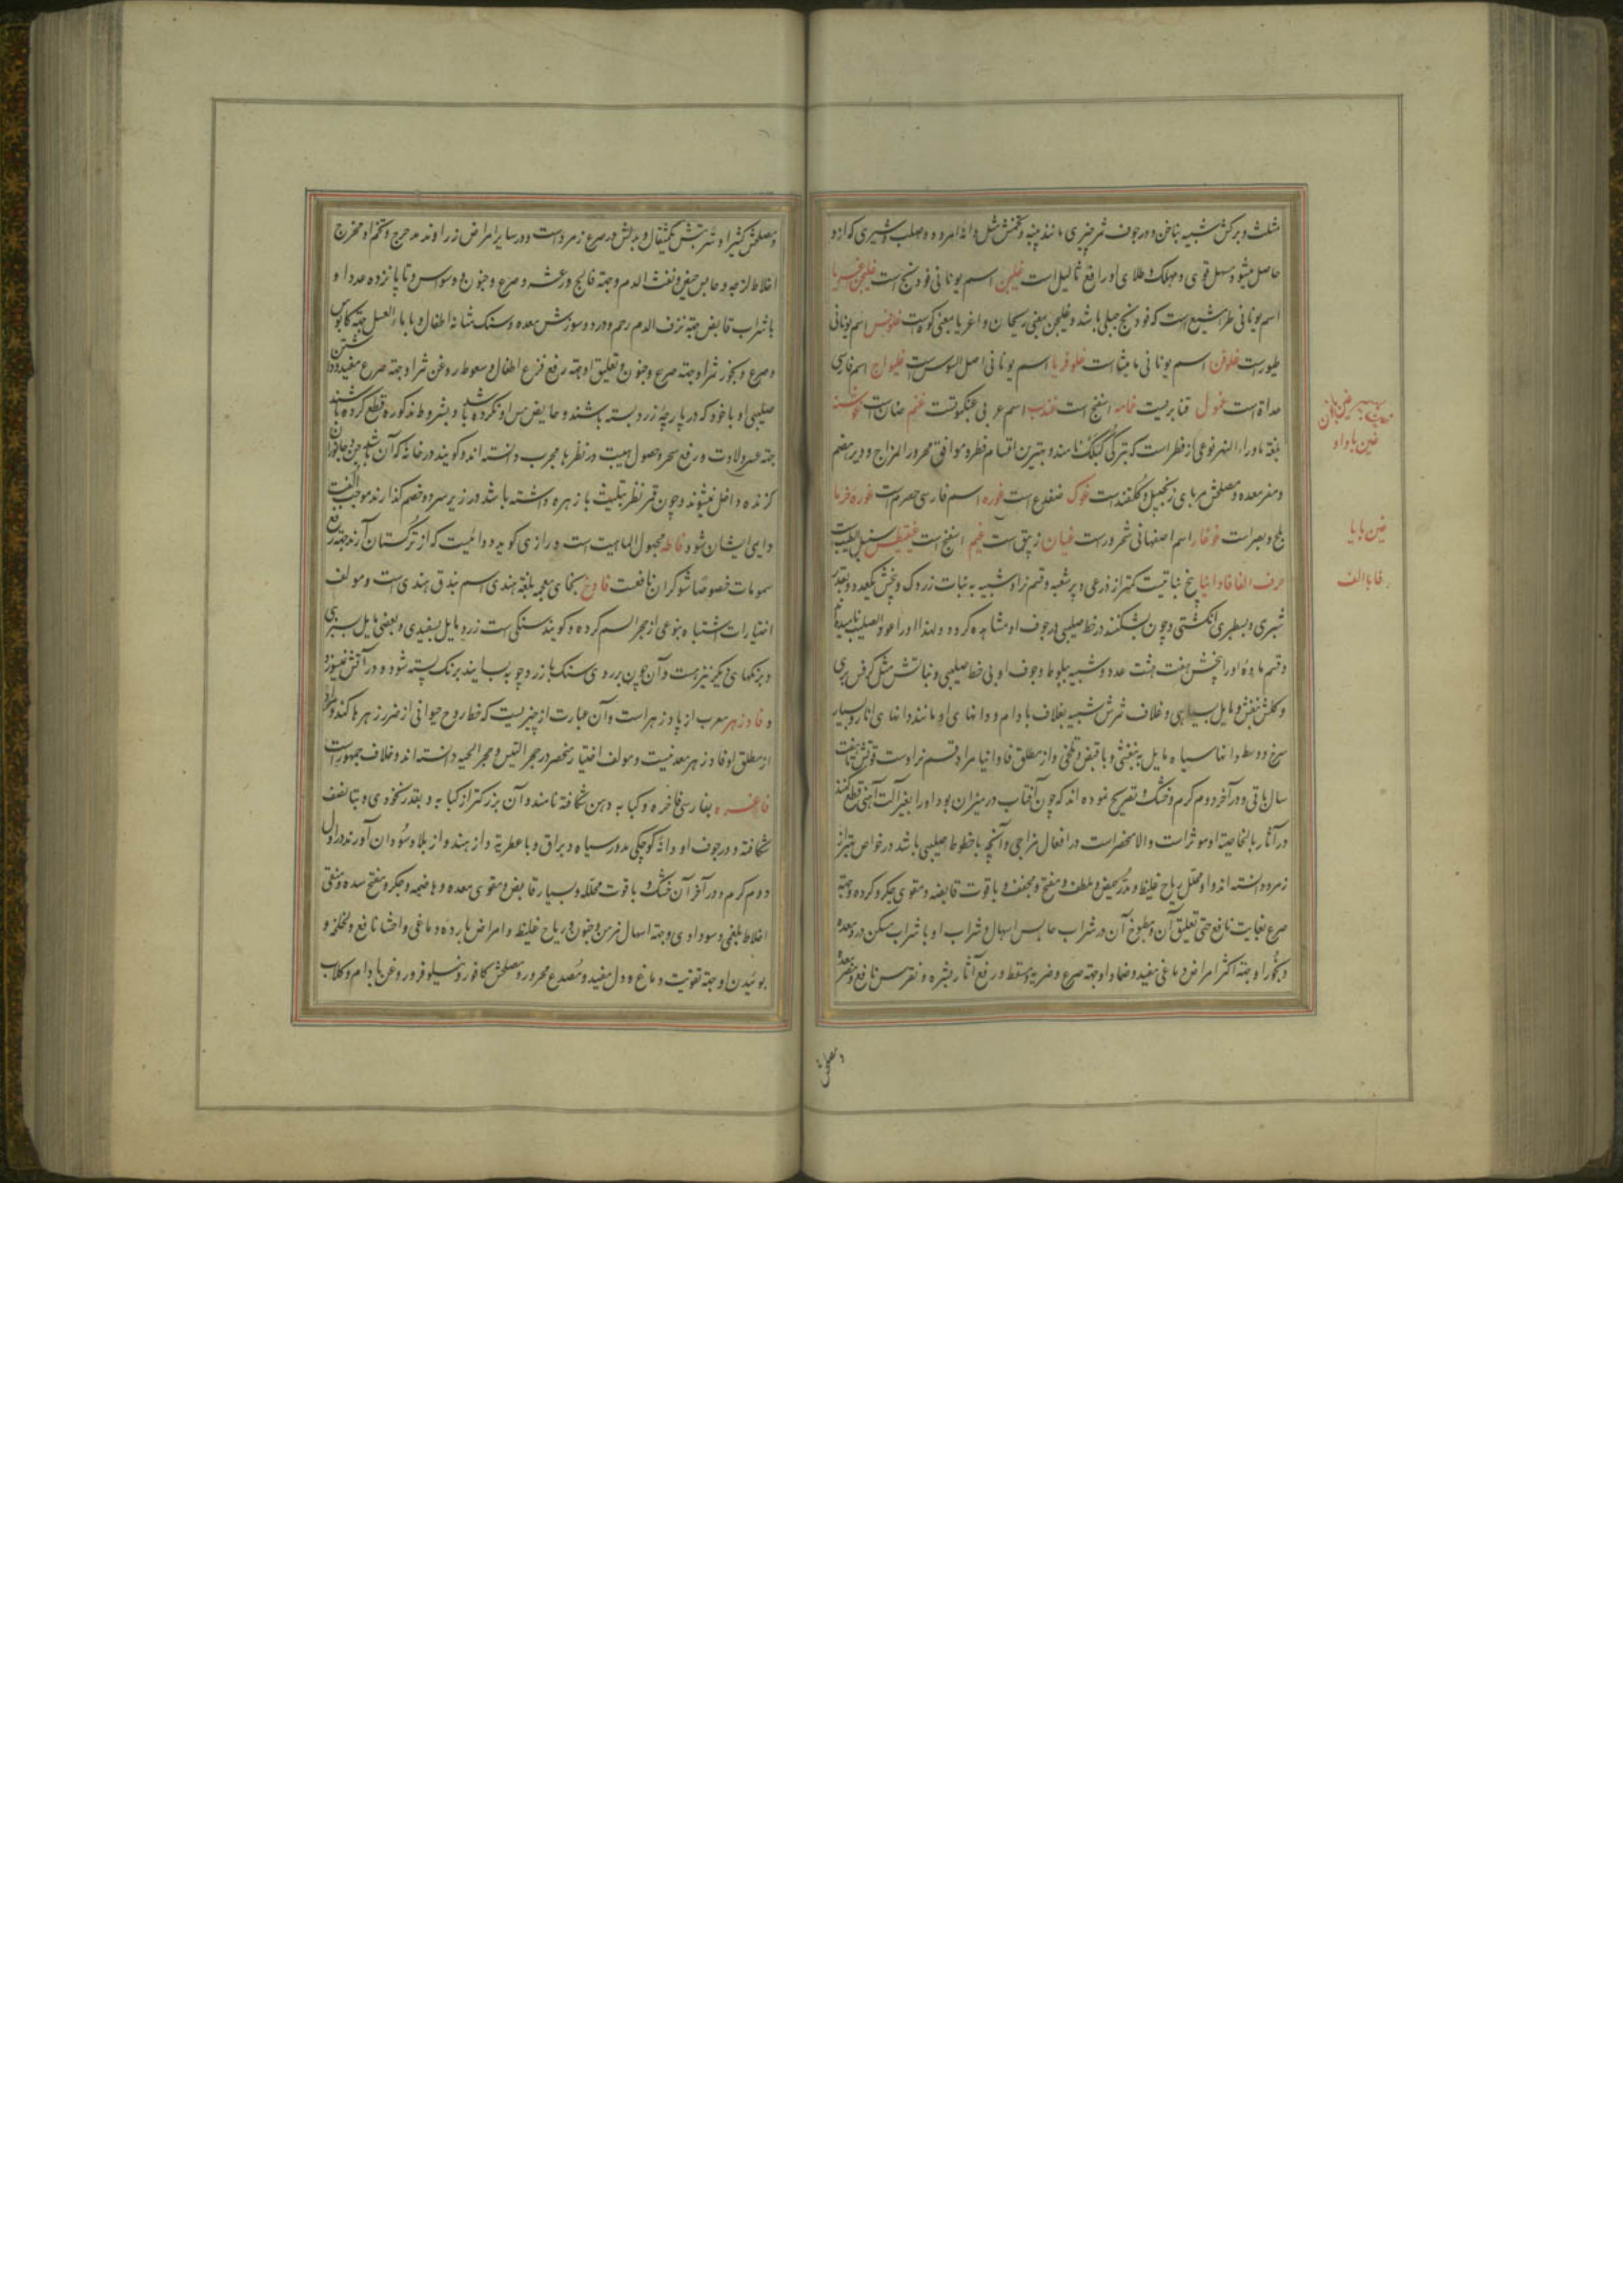 مثلث و برکش شبیه بناخن و در جوف ثمر چیزی مانند پنبه و تخمش مثل دانهٔ امرود و صلب و شیری که ازو
حاصل میشود مسهل قوی و مهلک و طلای او رافع ثالیل است غلیجن اسم یونانی فودنج است غلیجن اغریا
اسم یونانی مشکطرامشیع است که فودنج جبلی باشد و غلیجن بمعنی ریحان و اغریا بمعنی کوهیست اسم یونانی
طیورست غلوقن اسم یونانی مامیثا است غلوقریا اسم یونانی اصل السوس است غلیواج اسم فارسی
حداة است غملول قنابریست غمامه اسفنج است اسم عربی عنکبوتست غنم ضان است غوشنه
بلغة ماوراء النهر نوعی از فطر است که بترکی کبلک نامند و بهترین اقسام فطر و موافق محرور المزاج و دیر هضم
و مضر معده و مصلحش مربای زنجبیل و گلقندست غوک ضفدع است غوره اسم فارسی حصرم است غوره خرما
بلح و بسر است اسم اصفهانی است زیبق است غیم اسفنج است سنبل الطیب است
حرف الفا فاوانیا بیخ نباتیست کمتر از ذرعی و پر شعبه و قسم نر او شبیه به نبات زردک و بیخش یکعدد و بقدر
شبری و بسطبری انکشتی و چون بشکنند در خط صلیبی در جوف او مشاهده کردد و لهذا او را عود الصلیب نامیده
و قسم مادهٔ او را بیخش هفت هشت عدد و شبیه ببلوط و جوف او بی خط صلیبی و نباتش مثل کرفس بری
و کلش بنفش و مایل بسیاهی و غلاف ثمرش شبیه بغلاف بادام و دانهای او مانند دانهای انار و بسیار
سرخ و وسط دانها سیاه مایل به بنفشی و با قبض و تلخی و از مطلق فاوانیا مراد قسم نر اوست قوتش تا هفت
سال باقی و در آخر دوم کرم و خشک و تصریح نموده اند که چون آفتاب در میزان بود او را بغیر آلت آهنی قطع کنند
در آثار بالخاصیة او موثر است و الا منحصر است در افعال مزاجی و آنچه با خطوط صلیبی باشد در خواص بهتر از
زمرد دانسته اند و او محلل ریاح غلیظ و مدر حیض و ملطف و مفتح و مجفف و با قوت قابضه و مقوی جکر و کرده و جهة
صرع بغایت نافع حتی تعلیق آن و مطبوخ آن در شراب حابس اسهال و شراب او با شراب مسکن درد معده
و بخور او جهة اکثر امراض دماغی مفید و ضماد او جهة صرع و ضربه و سقطه و رفع آثار بشره و نقرس نافع و مضر معده
و مصلحش
غین با واو
غین با یا
فا با الف
و مصلحش کتیرا و شربتش یکمثقال و بدلش در صرع زمرد است و در سایر امراض زراوند مدحرج و تخم او مخرج
اخلاط لزجه و حابس حیض و نفث الدم و جهة فالج و رعشه و صرع و جنون و وسواس و تا پانزده عدد او
با شراب قابض جهة نزف الدم رحم و درد و سوزش معده و سنک مثانهٔ اطفال و با ماء العسل جهة کابوس
و صرع و بخور ثمر او جهة صرع و جنون و تعلیق او جهة رفع فزع اطفال و سعوط روغن ثمر او جهة صرع مفید و داشتن
صلیبی او با خود که در پارچهٔ زرد بسته باشند و حایض مس او نکرده باشد و بشروط مذکوره قطع کرده باشند
جهة عسر ولادت و رفع سحر و حصول هیبت در نظرها مجرب دانسته اند و کویند در خانهٔ که آن باشد جن و جانوران
کزنده داخل نمیشوند و چون قمر نظر بتثلیث با زهره داشته باشد و در زیر سر دو خصم کذارند موجب الفت
دایمی ایشان شود فاطه مجهول الماهیت است و رازی کوید دوائیست که از ترکستان آرند جهة رفع
سمومات خصوصا شوکران نافعست فاوخ بخای معجمه بلغة هندی اسم بندق هندی است و مولف
اختیارات اشتباه بنوعی از حجر السم کرده و کویند سنکی است زرد مایل بسفیدی و بعضی مایل بسبزی
و برنکهای دیکر نیز هست و آن چون بر روی سنک با زردچوبه بسایند برنک پسته شود و در آتش نسوزد
و فادزهر معرب از پادزهر است و آن عبارت از چیزیست که حفظ روح حیوانی از ضرر زهرها کند و مراد
از مطلق او فادزهر معدنیست و مولف اختیار منحصر در حجر التیس و حجر الحیه دانسته اند و خلاف جمهورست
فاغره بفارسی فاخره و کبابه دهن شکافته نامند و آن بزرکتر از کبابه و بقدر نخودی و تا نصف
شکافته و در جوف او دانهٔ کوچکی مدور سیاه و براق و با عطریة و از هند و از بلاد سودان آورند در اول
دوم کرم و در آخر آن خشک و با قوت محلله و بسیار قابض و مقوی معده و هاضمه و جکر و مفتح سده و منقی
اخلاط بلغمی و سوداوی و جهة اسهال مزمن و جنون و ریاح غلیظ و امراض بارده دماغی و احشا نافع و لخلخه و
بوئیدن او جهة تقویت دماغ و دل مفید و مصدع محرور و مصلحش کافور و نیلوفر و روغن بادام و کلاب